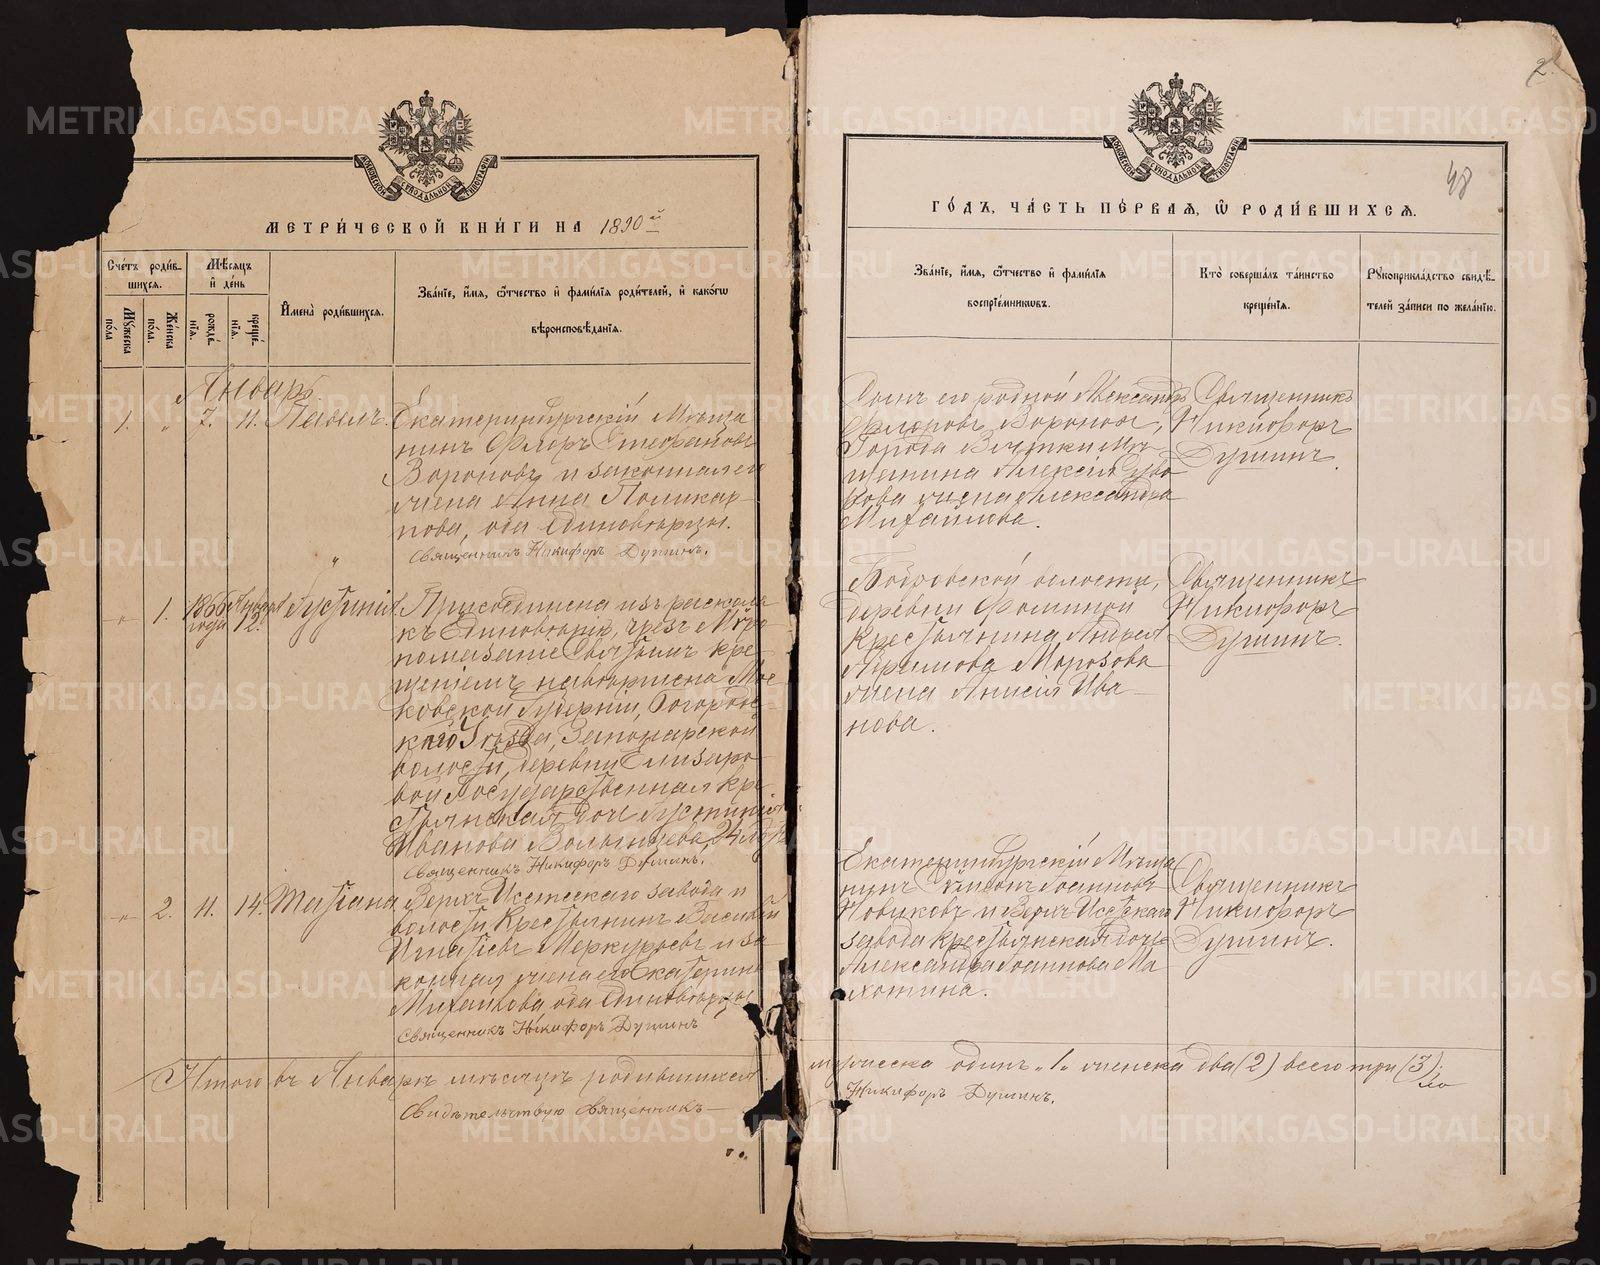 МЕТРИ́ЧЕСКОЙ КНИ́ГИ НА 1890й
Сче́тъ роди́в-
шихся.
Мѣ́сяцъ
и҆ де́нь
Му́жеска
по́ла
Же́нска
по́ла.
рожде́-
нїя.
креще́-
нїя.
И҆мена̀ роди́вшихся.
Зва́нїе, и҆́мя, ѻ҆́тчество и҆ фами́лїя роди́телей, и҆ како́гѡ
вѣроисповѣ́данїя.
Январь.
1. " 7. 11. Павелъ.
Екатеринбургскій Мѣща
нинъ Флоръ Стефановъ
Вороновъ и законная его
жена Анна Поликар-
пова, оба Единовѣрцы.
Священникъ Никифоръ Дутинъ.
" 1. 1866 года Января 12. Іустинія
Присоединена изъ раскола
къ Единовѣрію, чрезъ Мѵро
помазаніе Святымъ кре
щеніемъ навершена Мос
ковской Губерніи, Богород
каго Уѣзда, Запонарской
волости, деревни Елизаро
вой Государственная кре
стьянская дочь Іустинія
Иванова Волынцева, 24 лѣтъ
Священникъ Никифоръ Дутинъ.
" 2. 11. 14. Татіана
Верхъ Исетскаго завода и
волости Крестьянинъ Василій
Игнатіевъ Меркурьевъ и за
конная жена его Екатерина
Михайлова, оба Единовѣрцы
Священникъ Никифоръ Дутинъ
Итого въ Январѣ мѣсяцѣ родившихся
Свидѣтельствую священникъ —
2
48
ГО́ДЪ, ЧА́СТЬ ПЕ́РВАЯ, Ѡ҆ РОДИ́ВШИХСЯ.
Зва́нїе, и҆́мя, ѻ҆́тчество и҆ фами́лїя
воспрїе́мникѡвъ.
Кто̀ соверша́лъ та́инство
креще́нїя.
Рꙋкоприкла́дство свидѣ́-
телей за́писи по жела́нїю.
Сынъ его родной Александръ
Флоровъ Вороновъ,
Города Вятки Мѣ
щанина Алексія Суво
рова жена Александра
Михайлова.
Священникъ
Никифоръ
Дутинъ.
Бобровской волости,
деревни Фоминой
Крестьянина Андрея
Абрамова Морозова
жена Анисія Ива
нова.
Священникъ
Никифоръ
Дутинъ.
Екатеринбургскій Мѣща
нинъ Іоанновъ
Новиковъ и Верхъ Исетскаго
завода крестьянская дочь
Александра Іоаннова Ма
хотина.
Священникъ
Никифоръ
Дутинъ.
мужеска одинъ "1" женска два (2) всего три (3).
Никифоръ Дутинъ.
METRIKI.GASO-URAL.RU